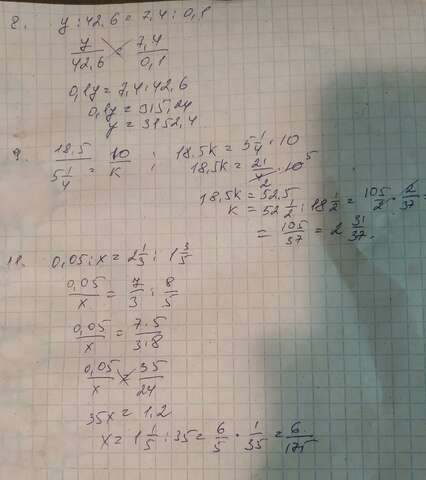 8. y : 42,6 = 7,4 : 0,1
y/42,6 = 7,4/0,1
0,1y = 7,4 · 42,6
0,1y = 315,24
y = 3152,4
9. 18,5/5 1/4 = 10/k ; 18,5k = 5 1/4 · 10
18,5k = 21/4 2 · 10 5
18,5k = 52,5
k = 52 1/2 : 18 1/2 = 105/2 · 2/37 =
= 105/37 = 2 31/37.
11. 0,05 : x = 2 1/3 : 1 3/5
0,05/x = 7/3 : 8/5
0,05/x = 7·5/3·8
0,05/x = 35/24
35x = 1,2
x = 1 1/5 : 35 = 6/5 · 1/35 = 6/175